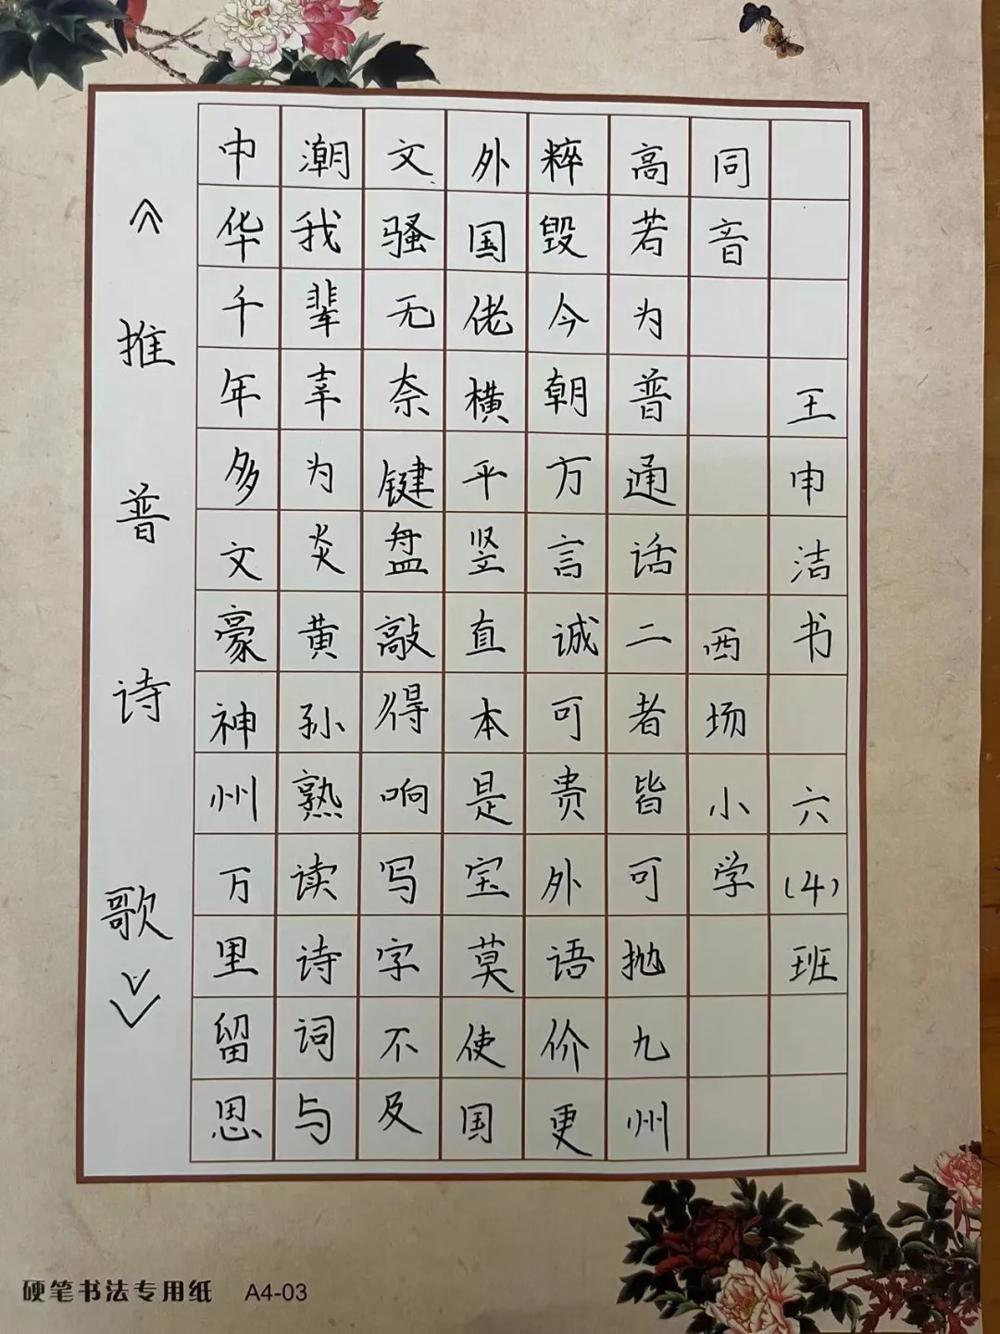 《推普诗歌》
中华千年多文豪神州万里留思
潮我辈幸为炎黄孙熟读诗词与
文骚无奈键盘敲得响写字不及
外国佬横平竖直本是宝莫使国
粹毁今朝方言诚可贵外语价更
高若为普通话二者皆可抛九州
同音 西场小学
王申洁书 六(4)班
硬笔书法专用纸 A4-03